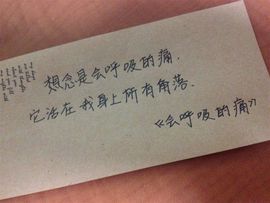 想念是会呼吸的痛.
它活在我身上所有角落.
《会呼吸的痛》